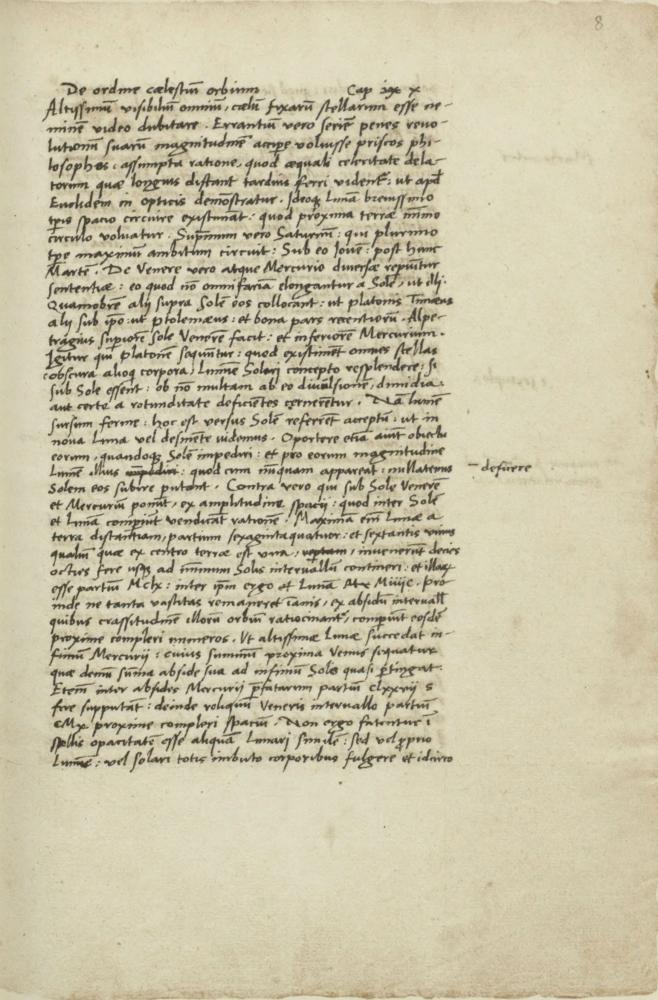 8
De ordine cælestiũ orbium Cap x
Altissimũ visibiliũ omniũ, cælũ fixarũ stellarum esse ne-
minẽ video dubitare. Errantiũ vero seriẽ penes revo-
lutionũ suarũ magnitudinẽ accipe voluisse priscos phi-
losophos: assumpta ratione, quod æquali celeritate dela-
torum quæ longius distant tardius ferri videntʳ: ut apd̃
Euclidem in opticis demõstratur. Ideoqʒ Lunã brevissimo
tp̃is spacio circuire existimãt: quod proxima terræ minimo
circulo volvatur. Supremum vero Saturnũ: qui plurimo
tp̃e maximũ ambitum circuit: Sub eo Iovẽ: post hunc
Martẽ. De Venere vero atque Mercurio diversæ reperiũtur
sententiæ: eo quod nõ omnifariã elongantur a Sole, ut illi.
Quamobrẽ alij supra Solẽ eos collocãt: ut platonis Timæus
alij sub ip̃o: ut ptolemæus: et bona pars recentiorũ. Alpe-
tragius superiorẽ Sole Venerẽ facit: et inferiorẽ Mercurium.
Igitur qui platonẽ sequũtur: quod existimẽt omnes stellas
obscura alioq corpora, Lumine Solari concepto resplendere: si
sub Sole essent: ob nõ multam ab eo divulsionẽ, dimidia
aut certe a rotunditate deficiẽtes cernerẽtur. Nã lumẽ
sursum ferme: hoc est versus Solẽ referrẽt acceptũ: ut in
nova Luna vel desinẽte videmus. Oportere etiã aiũt obiectu
eorum, quandoqʒ Solẽ impediri: et pro eorum magnitudine
Lumẽ illius: quod cum nũquam appareat: nullatenus
- defuere
Solem eos subire putant. Contra vero qui sub Sole Venerẽ
et Mercuriũ ponũt, ex amplitudine spacij: quod inter Solẽ
et Lunã comp̃iũt vendicãt rationẽ. Maximã em̃ Lunæ a
terra distantiam, partium sexagintaquatuor: et sextantis unius
qualiũ quæ ex centro terræ est una, invenerũt decies
octies fere usqʒ ad minimum Solis intervallũ contineri: et illaʒ
esse partiũ Mclx: inter ip̃m ergo et Lunã
inde ne tanta vastitas remaneret inanis, ex absidũ intervall̃
quibus crassitudinẽ illorũ orbiũ ratiocinantʳ, comp̃iũt eosdẽ
proxime compleri numeros. Ut altissimæ Lunæ succedat in-
fimũ Mercurii: cuius summũ proxima Venus sequatur
quæ demũ sũma abside sua ad infimũ Solis quasi p̃tingat.
Etenĩ inter absides Mercurij p̃fatarum partiũ clxxvij s
fere supputãt: deinde reliquũ Veneris intervallo partiũ
cMx proxime compleri spaciũ. Non ergo fatentur i
stellis opacitatẽ esse aliquã Lunari similẽ: sed vel p̃prio
Lumĩe: vel solari totis imbuto corporibus fulgere et idcirco